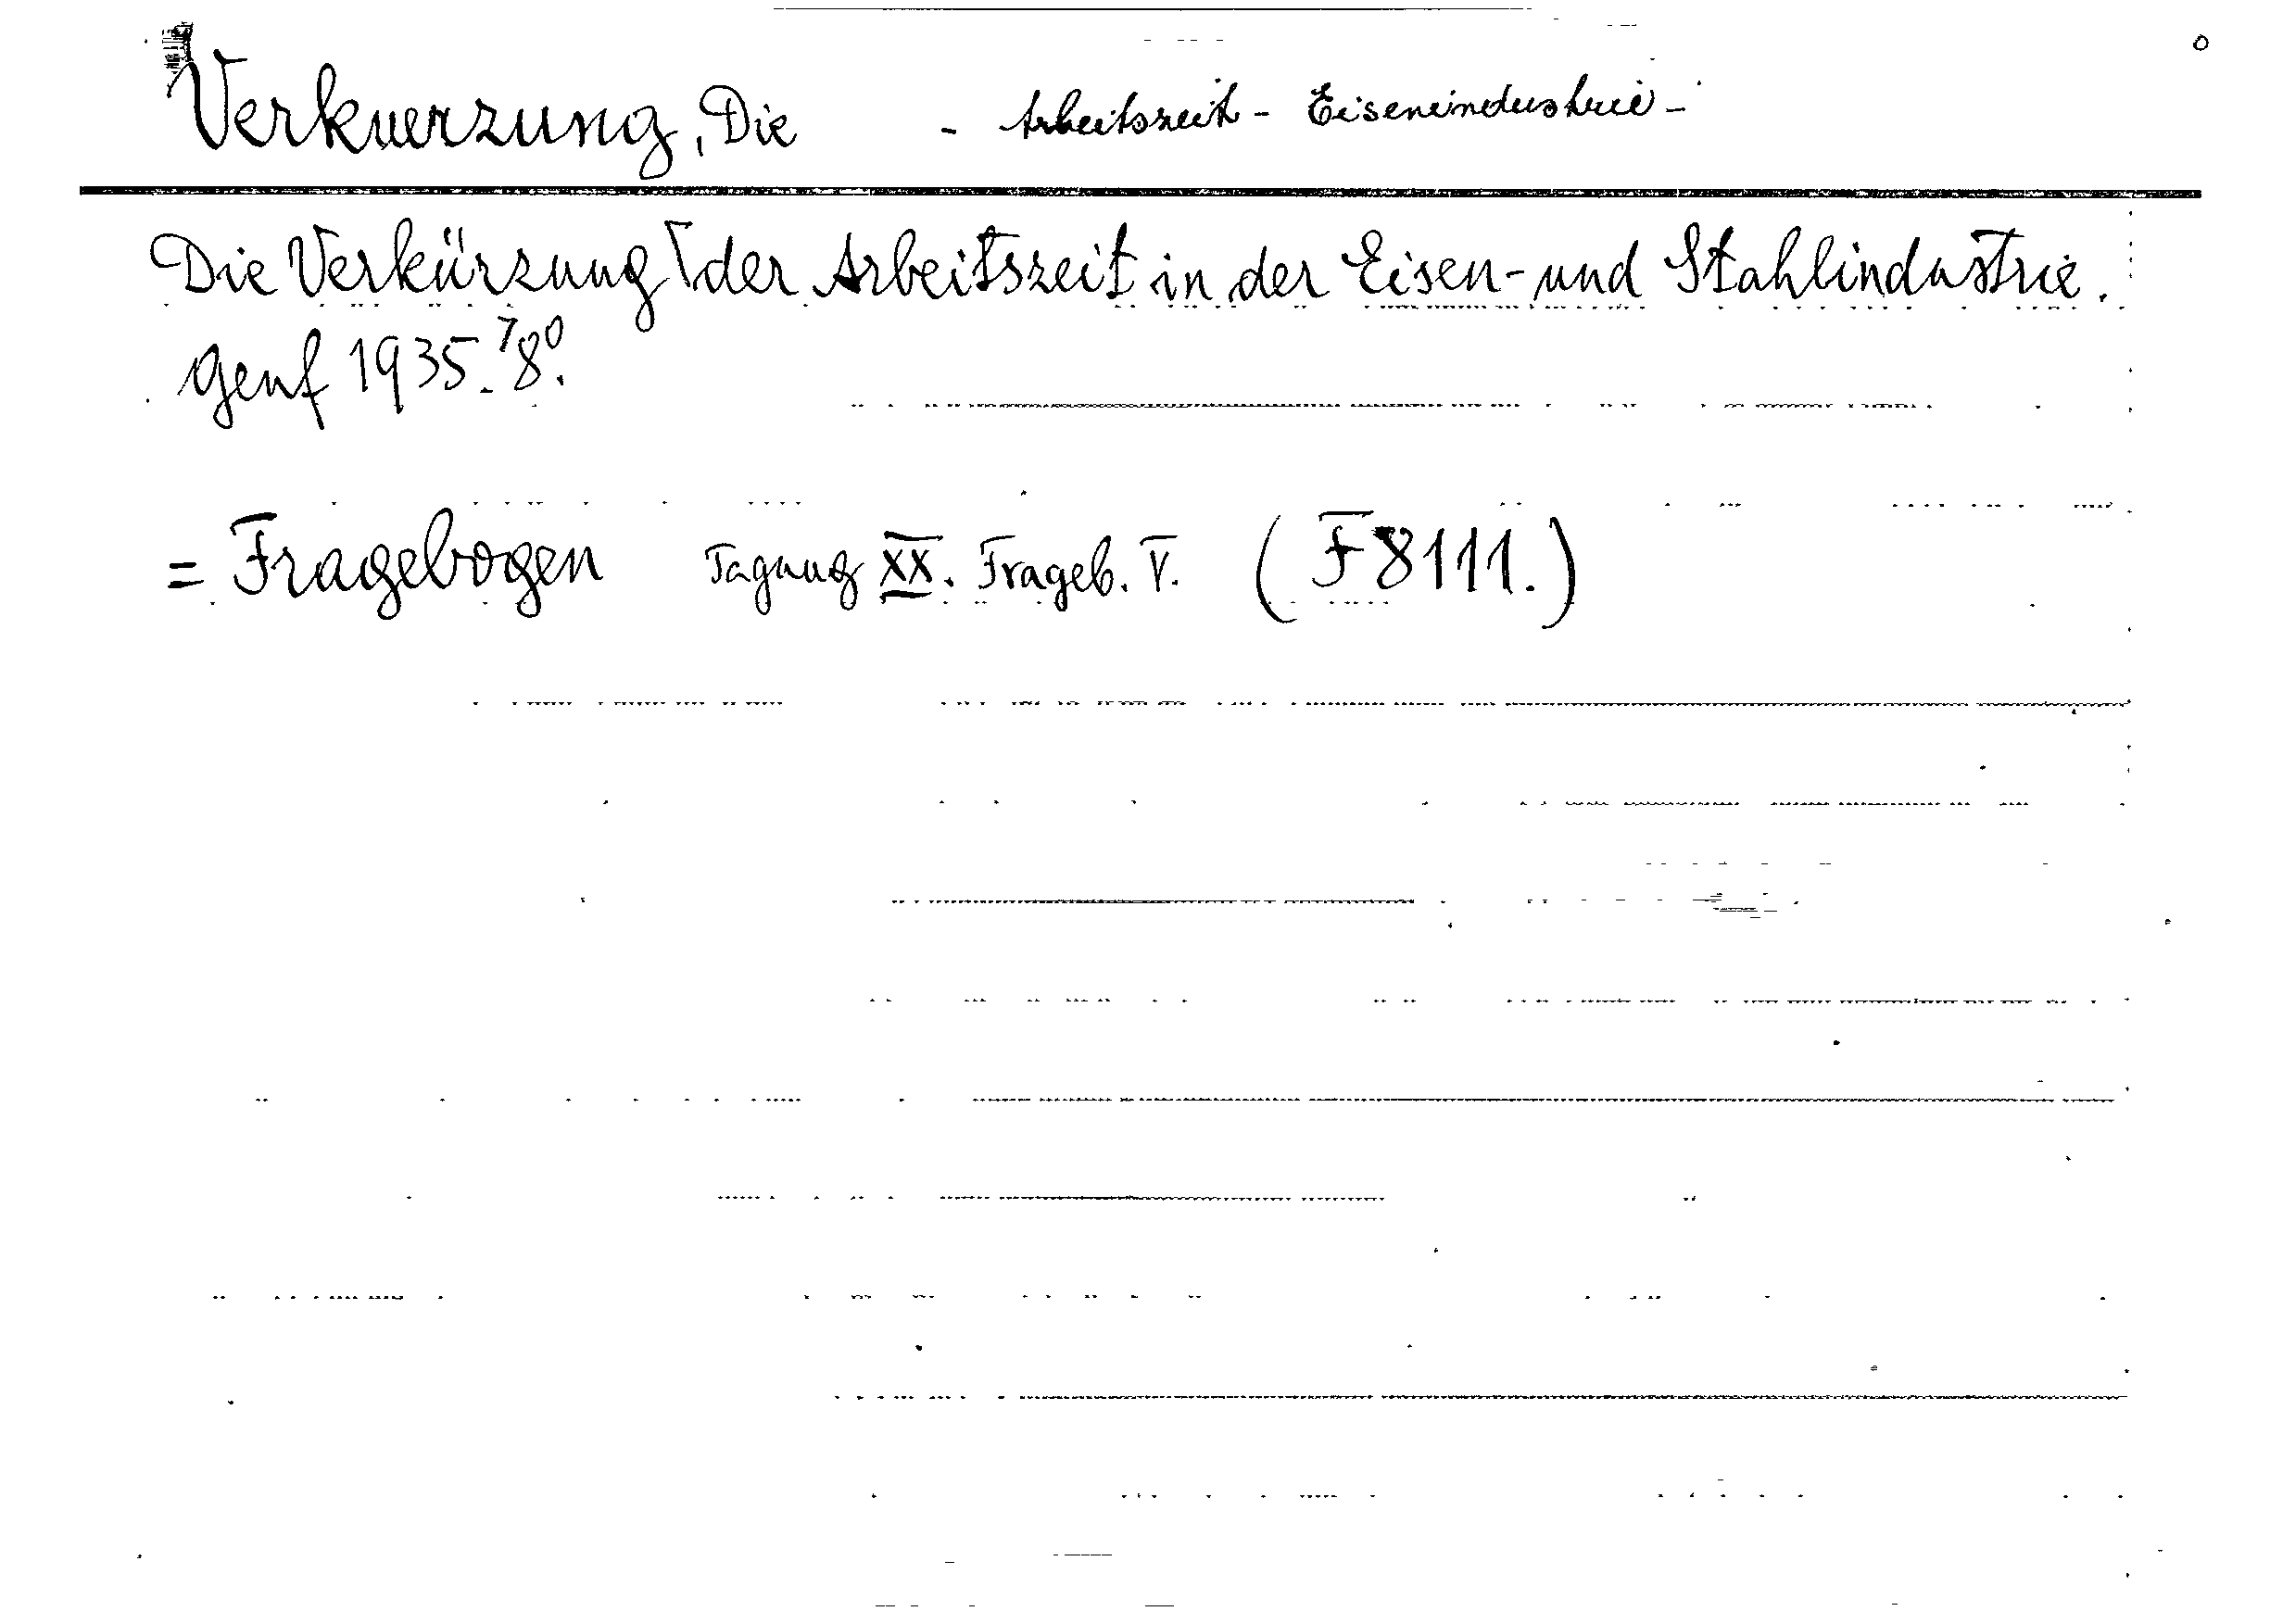 Verkuerzung, Die - Arbeitszeit - Eisenindustrie -
Die Verkürzung der Arbeitszeit in der Eisen- und Stahlindustrie.
Genf 1935. 8⁰.
= Fragebogen Tagung XX. Frageb. V. (F 8111.)